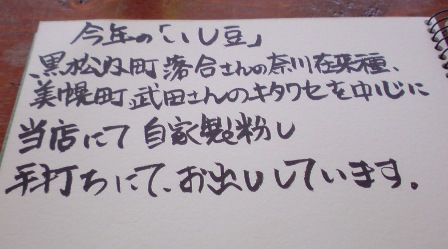 今年の「いし豆」
黒松内町 落合さんの奈川在来種、
美幌町 武田さんのキタワセを中心に
当店にて 自家製粉し
手打ちにて、お出ししています。